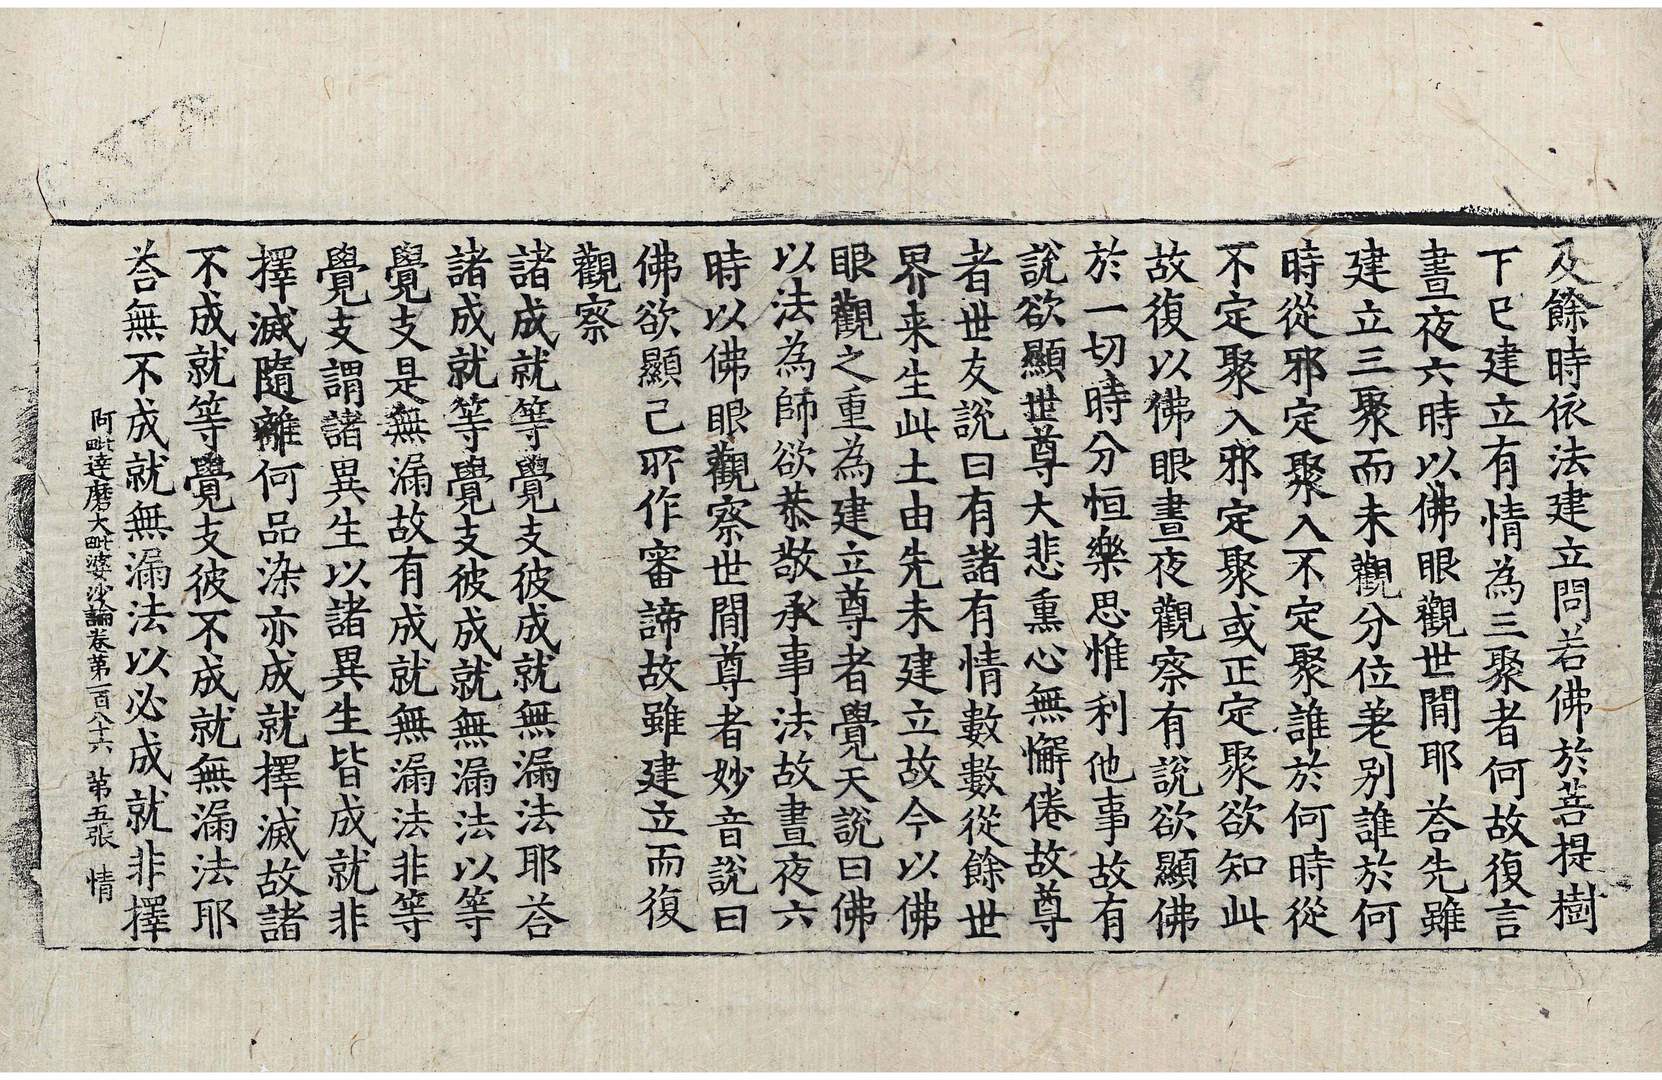 及餘時依法建立問若佛於菩提樹
下已建立有情為三聚者何故復言
晝夜六時以佛眼觀世間耶荅先雖
建立三聚而未觀分位差別誰於何
時從邪定聚入不定聚誰於何時從
不定聚入邪定聚或正定聚欲知此
故復以佛眼晝夜觀察有說欲顯佛
於一切時分恒樂思惟利他事故有
說欲顯世尊大悲熏心無懈倦故尊
者世友說曰有諸有情數數從餘世
界来生此土由先未建立故今以佛
眼觀之重為建立尊者覺天說曰佛
以法為師欲恭敬承事法故晝夜六
時以佛眼觀察世間尊者妙音說曰
佛欲顯己所作審諦故雖建立而復
觀察
諸成就等覺支彼成就無漏法耶荅
諸成就等覺支彼成就無漏法以等
覺支是無漏故有成就無漏法非等
覺支謂諸異生以諸異生皆成就非
擇滅隨離何品染亦成就擇滅故諸
不成就等覺支彼不成就無漏法耶
荅無不成就無漏法以必成就非擇
阿毗達磨大毗婆沙論卷第一百八十六 第五張 情